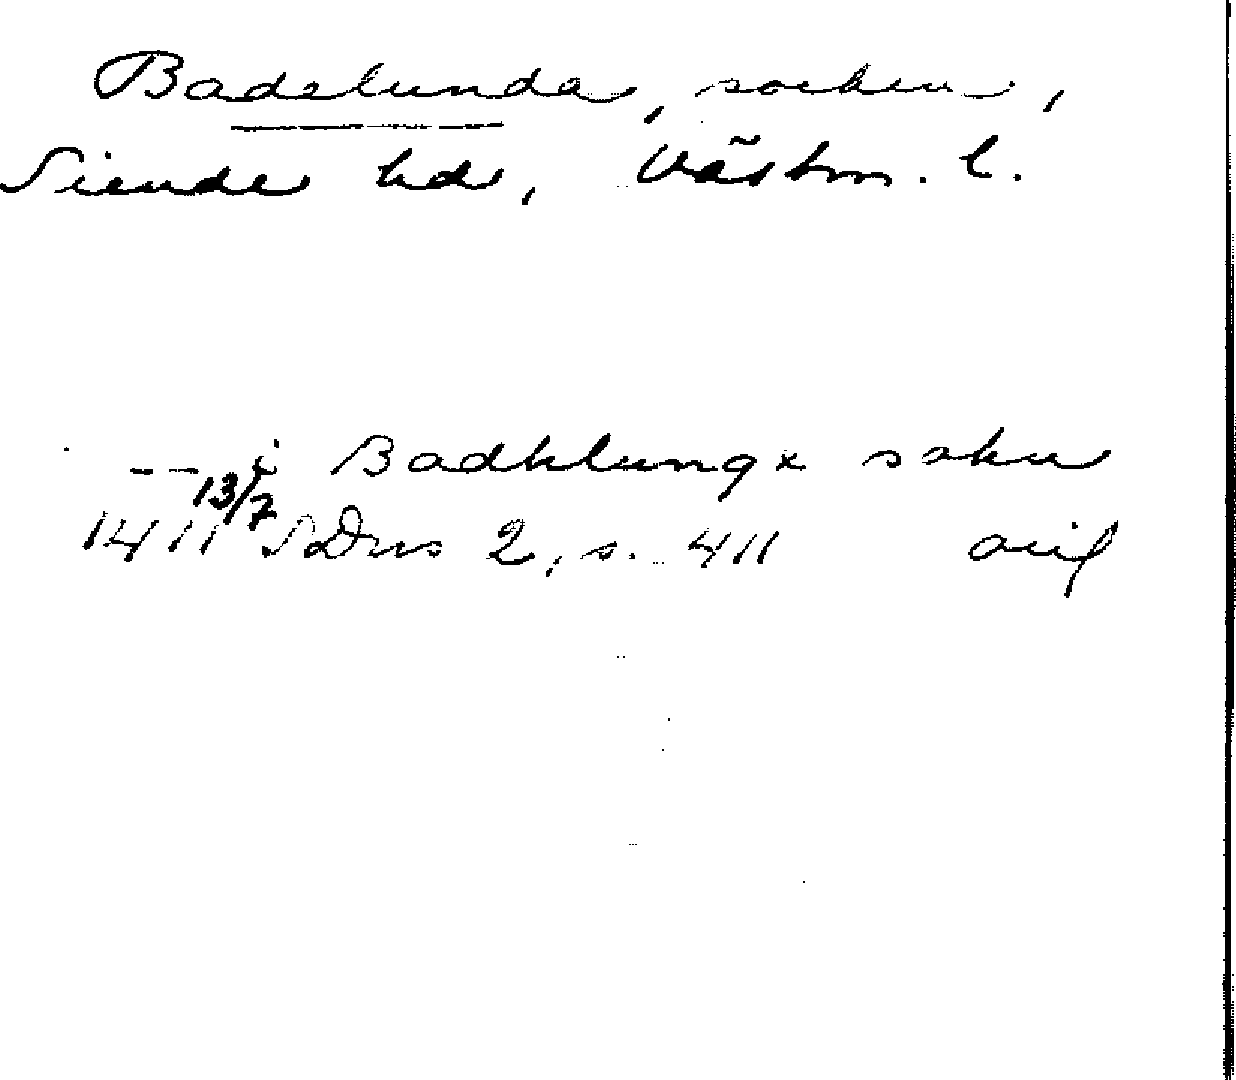 Badelunda, socken,
Siende hd, Västm. l.
-- i Badhlungx sokn
1411 13/7 SDns 2, s. 411 avil